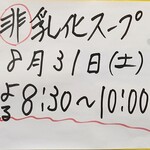 非乳化スープ
8月31日(土)
よる8:30～10:00